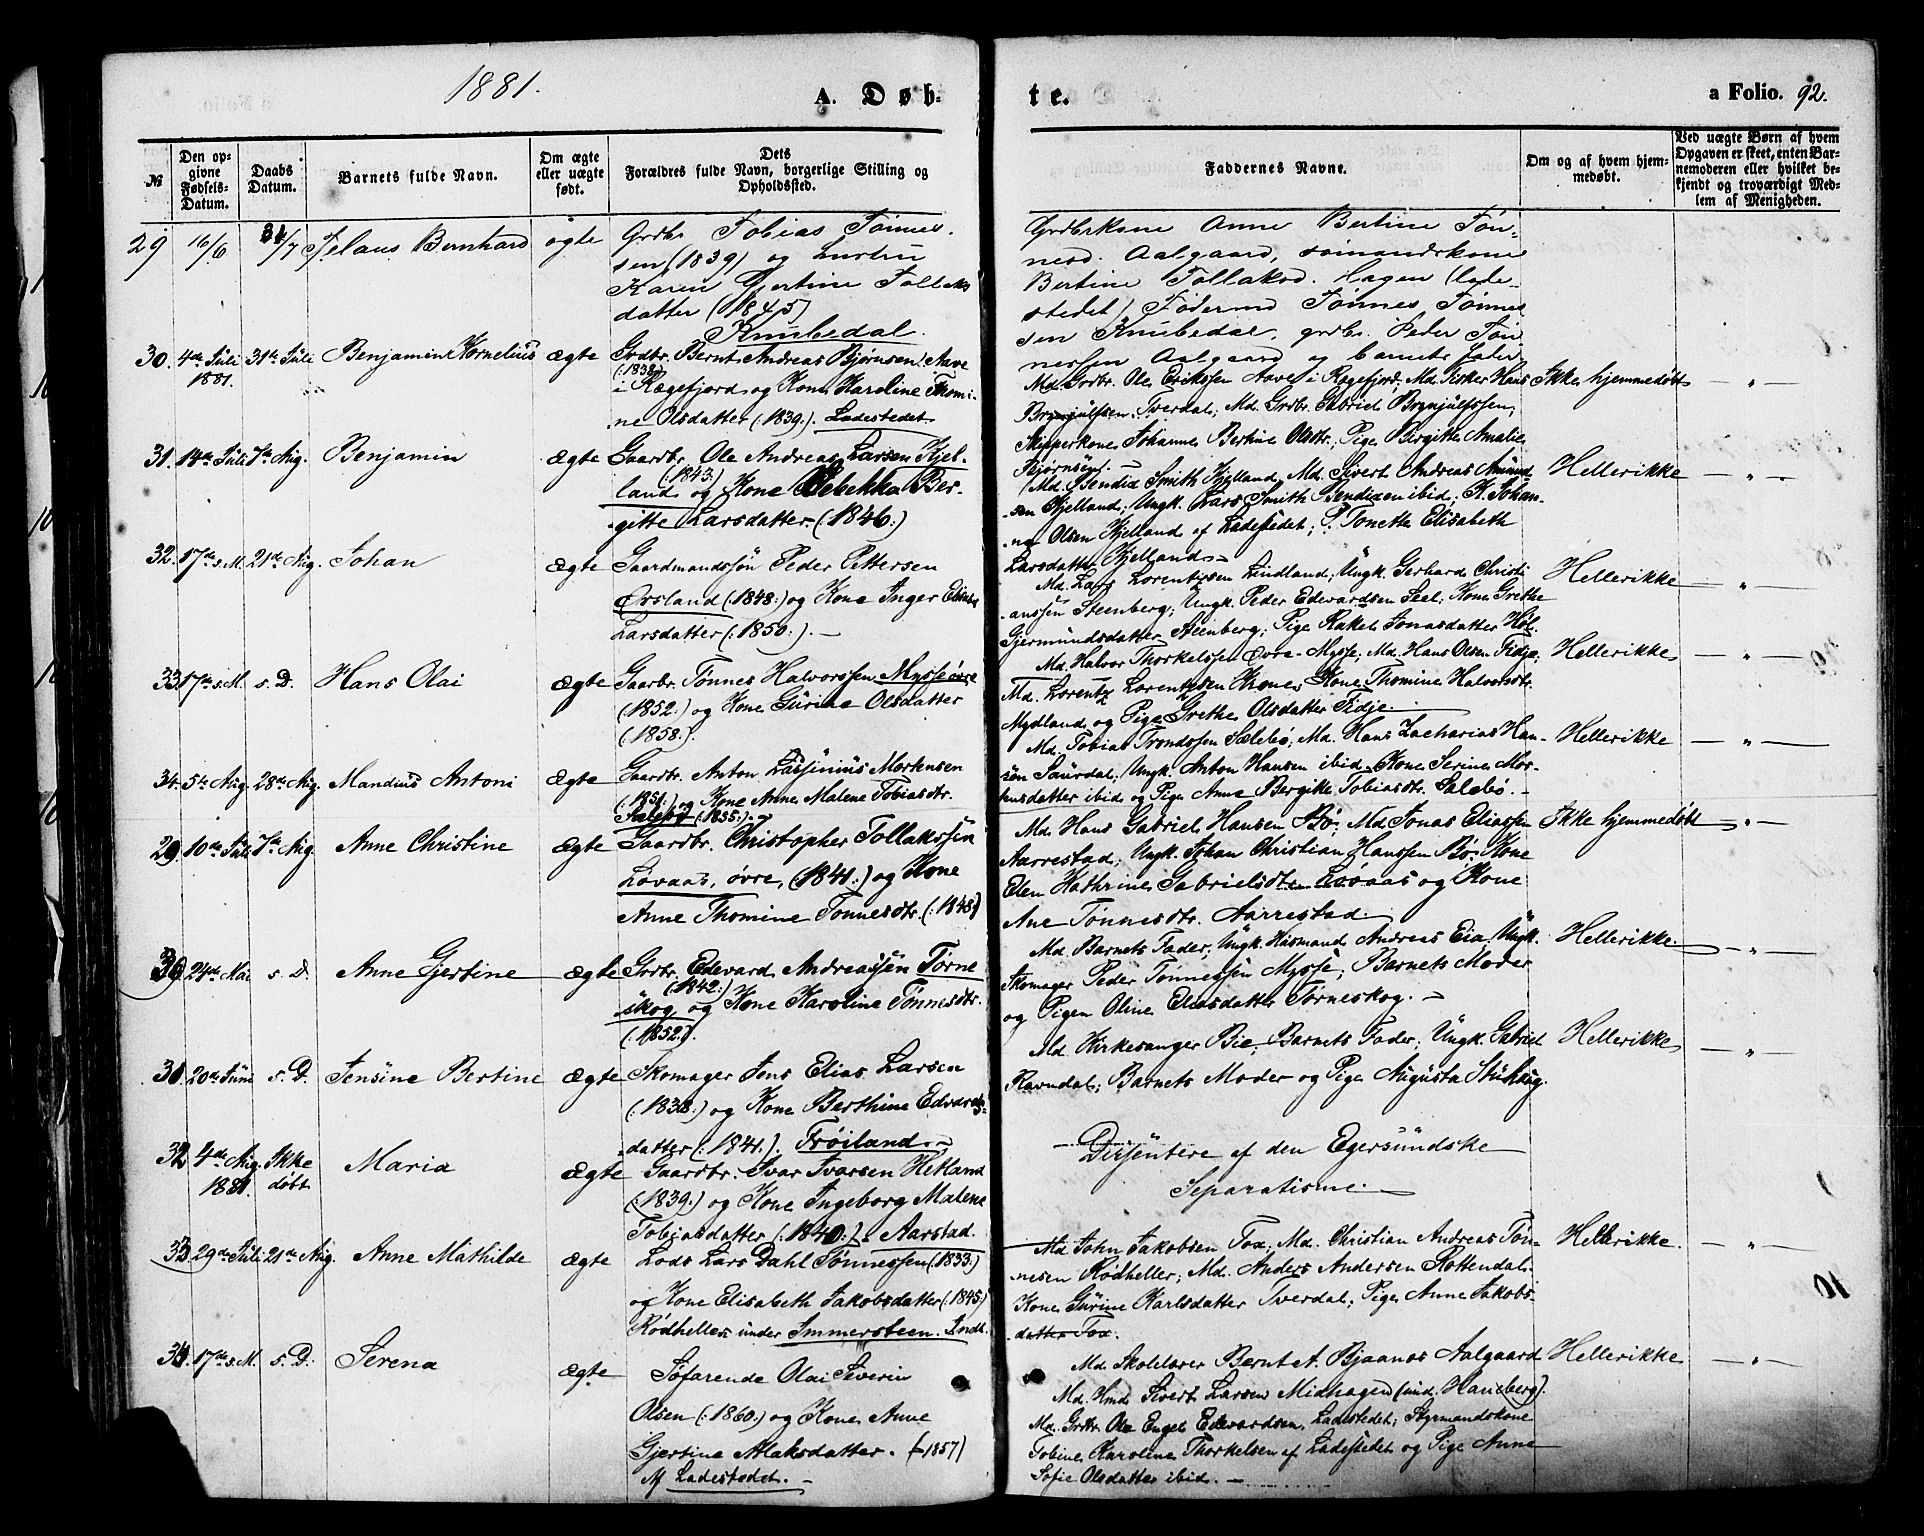 1881.
A. Døb-
te.
a Folio. 92.
№
Den op-
givne
Fødsels-
Datum.
Daabs
Datum.
Barnets fulde Navn.
Om ægte
eller uægte
født.
Dets
Forældres fulde Navn, borgerlige Stilling og
Opholdssted.
Faddernes Navne.
Om og af hvem hjem-
medøbt.
Ved uægte Børn af hvem
Opgaven er skeet, enten Bar-
nemoderen eller hvilket be-
kjendt og troværdigt Med-
lem af Menigheden.
29 16/6 /7 Jelaus Bernhard ægte Grdbr Tobias Tønnes-
sen (1839) og hustru
Karen Gjertine Tollaks
datter (1845)
Knubedal.
Grdbrkone Anne Bertine Tøn-
nesd. Aalgaard, sømandskone
Bertine Tollaksd. Hagen (lade-
stedet), Fødermd Tønnes Tønnes
sen Knubedal, grdbr. Peder Tøn-
nessen Aalgaard og barnets fader
30. 4de Juli 31te Juli Benjamin Kornelius ægte Grdbr. Bernt Andreas Bjørnsen Aave
1881. (:1838:)
i Rægefjord og Kone Karoline Thomi-
ne Olsdatter (:1839:). Ladestedet.
Md. Grdbr. Ole Eriksen Aave i Rægefjord; Md. Fisker Hans Ikke hjemmedøbt — " —
Brynjulfsen Tverdal; Md. Grdbr. Gabriel Brynjulfssen;
Skipperkone Johanne Bertine Olsdtr; Pige Birgitte Amalie
Bjørnsen.
31. 14de Juli 7de Aug. Benjamin ægte Gaardbr. Ole Andreas Larsen Hjel-
(:1843:)
land og Kone Rebekka Ber-
gitte Larsdatter. (:1846:)
Md. Bendix Smith Hjelland, Md. Sivert Andreas Amund- Hellerikke — " —
sen Hjelland; Ungk. Lars Smith Bendixen ibid; K. Johan-
ne Olsen Hjelland af Ladestedet; P. Tonette Elisabeth
Larsdatter Hjelland.
32. 17de s.M. 21de Aug. Johan ægte Gaardmandssøn Peder Pettersen
Ørsland (:1848:) og Kone Inger Elisabet
Larsdatter (:1850:). —
Md. Lars Lorentzen Lindland; Ungk. Gerhard Christi- Hellerikke — " —
anssen Steenberg; Ungk. Peder Edvardsen Seel; Kone Grethe
Gjermundsdatter Steinberg; Pige Rakel Jonasdatter Høl.
33 17de s.M. s. D. Hans Olai ægte Gaarbr. Tønnes Halvorssen Mysseøvre
(:1852:) og Kone Gurine Olsdatter
(:1858:).
Md. Halvor Thorkelssen Øvre-Mysse; Md. Hans Olsen Tidje; Hellerikke — " —
Md. Lorentz Lorentzen Krone; Kone Thomine Halvorsdtr.
Mydland og Pige Grethe Olsdatter Tidje.
34. 5te Aug. 28de Aug. Mandius Antoni ægte Gaardbr. Anton Mortensen
(:1851:) og Kone Anne Malene Tobiasdtr.
Sælebø (:1855:).
Md. Tobias Trondssen Sælebø; Md. Hans Zacharias Han- Hellerikke — " —
sen Saurdal; Ungk. Anton Hansen ibid. Kone Serine Mor-
tensdatter ibid. og Pige Anne Bergitte Tobiasdtr. Sælebø. —
29. 10de Juli 7de Aug. Anne Christine ægte Gaardbr. Christopher Tollakssen
Løvaas, øvre, (:1841:) og Kone
Anne Thomine Tønnesdtr. (:1848:)
Md. Hans Gabriel Hansen Bø; Md. Jonas Eliassen Ikke hjemmedøbt — " —
Aarrestad; Ungk. Johan Christian Hanssen Bø; Kone
Elen Kathrine Gabrielsdtr. Løvaas og Kone
Ane Tønnesdtr. Aarrestad.
30 24de Mai s. D. Anne Gjertine ægte Grdbr. Edevard Andreassen Tørne
(:1842:)
skog og Kone Karoline Tønnesdtr.
(:1852:)
Md. Barnets Fader; Ungk. Husmand Andreas Eia, Ungk. Hellerikke. — " —
Skomager Peder Tønnessen Mysse; Barnets Moder
og Pigen Oline Eliasdatter Tørneskog. —
31 20de Juni s. D. Jensine Bertine ægte Skomager Jens Elias Larsen
(:1838:) og Kone Berthine Edvards-
datter (:1841:). Frøiland.
Md. Kirkesanger Bie; Barnets Fader; Ungk. Gabriel Hellerikke — " —
Ravndal; Barnets Moder og Pige Augusta Stuhaug.
32 4de Aug. Ikke Maria ægte Gaardbr. Ivar Ivarsen Hetland
1881. døbt
(:1839:) og Kone Ingeborg Malene
Tobiasdatter (:1840:). Aarstad.
Dissentere af den Egersundske
Separatisme.
33 29de Juli 21de Aug. Anne Mathilde ægte Lods Lars Dahl Tønnessen (:1833:)
og Kone Elisabeth Jakobsdatter (:1845:)
Rødheller under Immersteen. Indl.
Md. John Jakobsen Tox; Md. Christian Andreas Tøn- Hellerikke. — " —
nesen Rødheller; Md. Anders Andersen Rottendal.
Kone Gurine Karlsdatter Tverdal; Pige Anne Jakobs-
datter Tox.
34. 17de s.M. s. D. Serena ægte Søfarende Olai Severin
Olsen (:1860:) og Kone Anne
Gjertine Aslaksdatter. (1857)
Af Ladestedet. —
Md. Skolelærer Bernt A. Bjaanos Aalgaard Hellerikke — " —
Md. Hmd. Sivert Larsen Midhagen (und. Haneberg).
Md. Grdbr. Ole Engel Edvardsen, Ladestedet; Styrmandskone
Tobine Karoline Thorkelsen af Ladestedet og Pige Anne
Sofie Olsdatter ibid. —